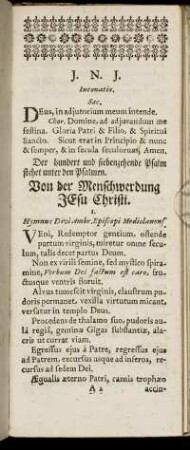 J. N. J.
Intonatio.
Sac.
DEus, in adjutorium meum intende.
Chor. Domine, ad adjuvandum me
festina. Gloria Patri & Filio, & Spiritui
Sancto. Sicut erat in Principio & nunc
& semper, & in secula seculorum, Amen.
Der hundert und siebenzehende Psalm
stehet unter den Psalmen.
Von der Menschwerdung
JEsu Christi.
I.
Hymnus Dni Ambr. Episcopi Mediolanens
VEni, Redemptor gentium, ostende
partum virginis, miretur omne secu-
lum, talis decet partus Deum.
Non ex virili semine, sed mystico spira-
mine, Verbum Dei factum est caro, fru-
ctusque ventris floruit.
Alvus tumescit virginis, claustrum pu-
doris permanet, vexilla virtutum micant,
versatur in templo Deus.
Procedens de thalamo suo, pudoris au-
lâ regiâ, geminæ Gigas substantiæ, ala-
cris ut currat viam.
Egressus ejus à Patre, regressus ejus
ad Patrem, excursus usque ad inferos, re-
cursus ad sedem Dei.
Æqualis æterno Patri, carnis trophæo
A 2 accin-